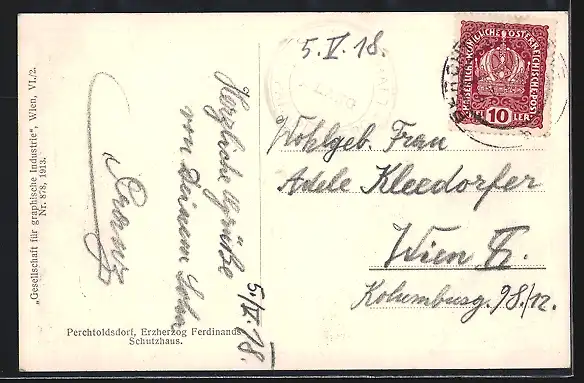 "Gesellschaft für graphische Industrie", Wien, VI./2.
Nr. 878, 1913.
5. V. 18.
KAISERLICHE KÖNIGLICHE ÖSTERREICHISCHE POST
10 HELLER
Wohlgeb. Frau
Adele Kleedorfer
Wien
Kolumburg. 9/8./12.
Herzliche Grüße
von Deinem Sohn
Franz
5/V. 18.
Perchtoldsdorf, Erzherzog Ferdinands
Schutzhaus.